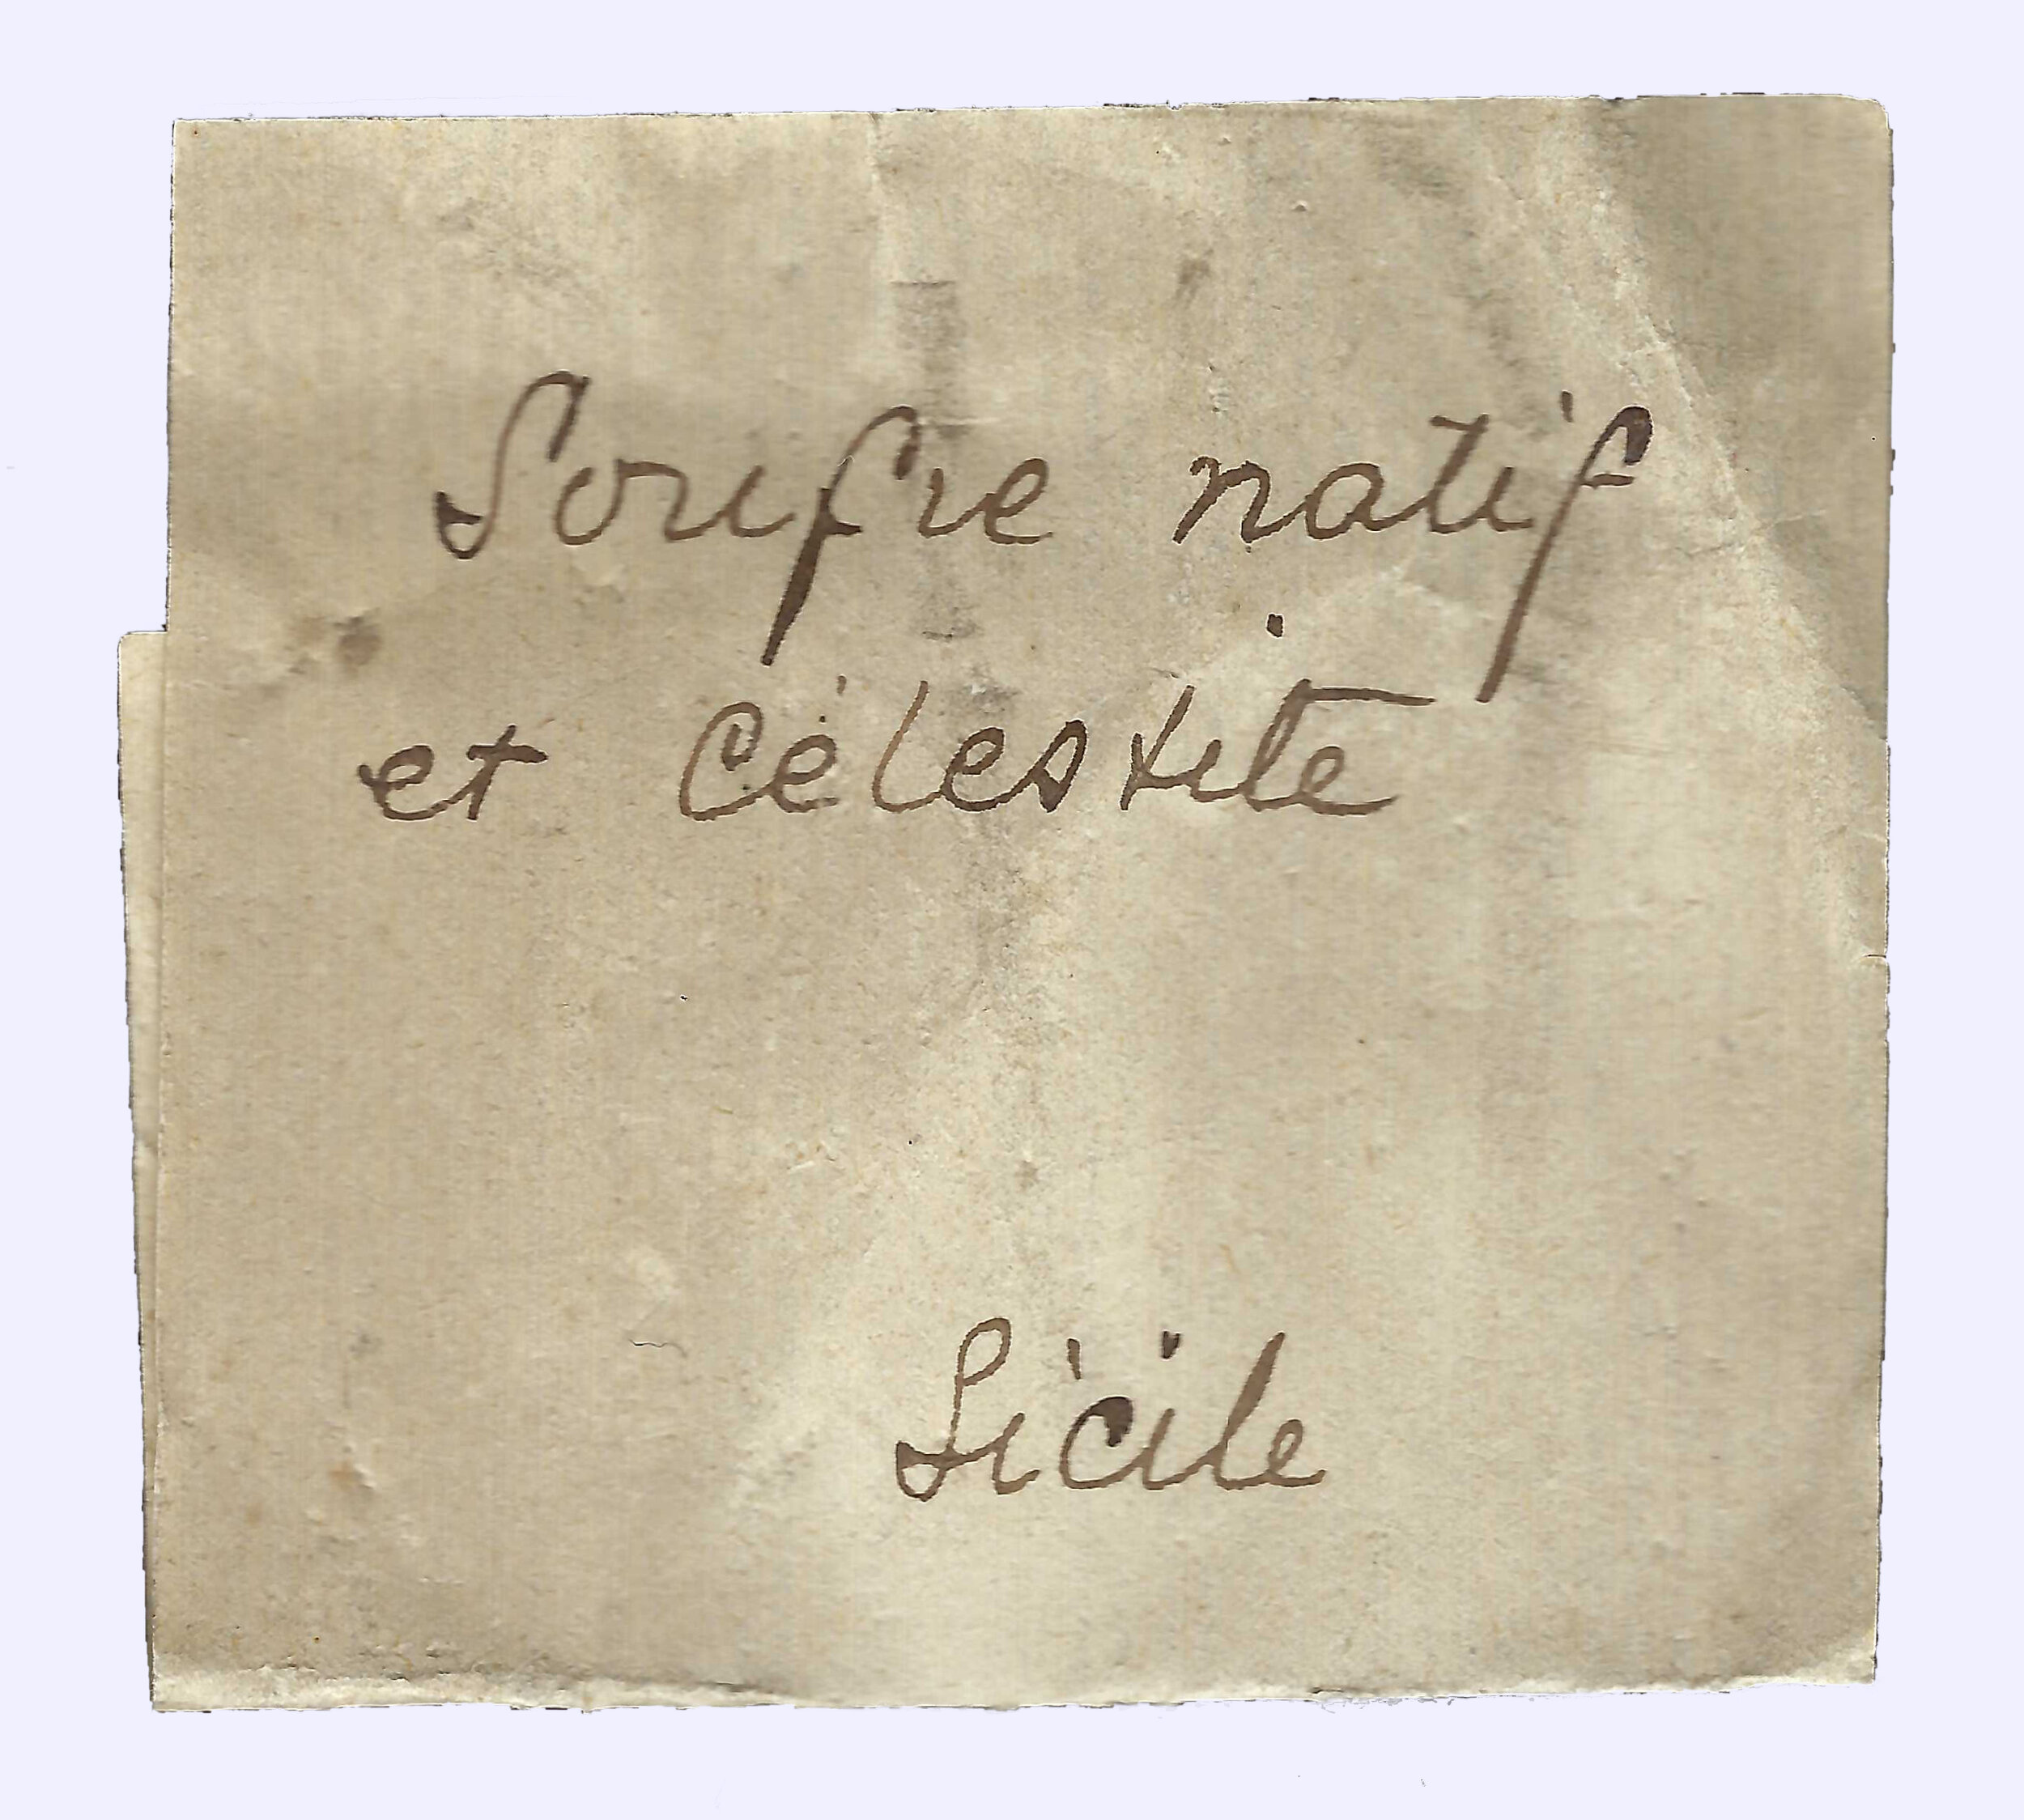 Soufre natif
et Célestite
Sicile